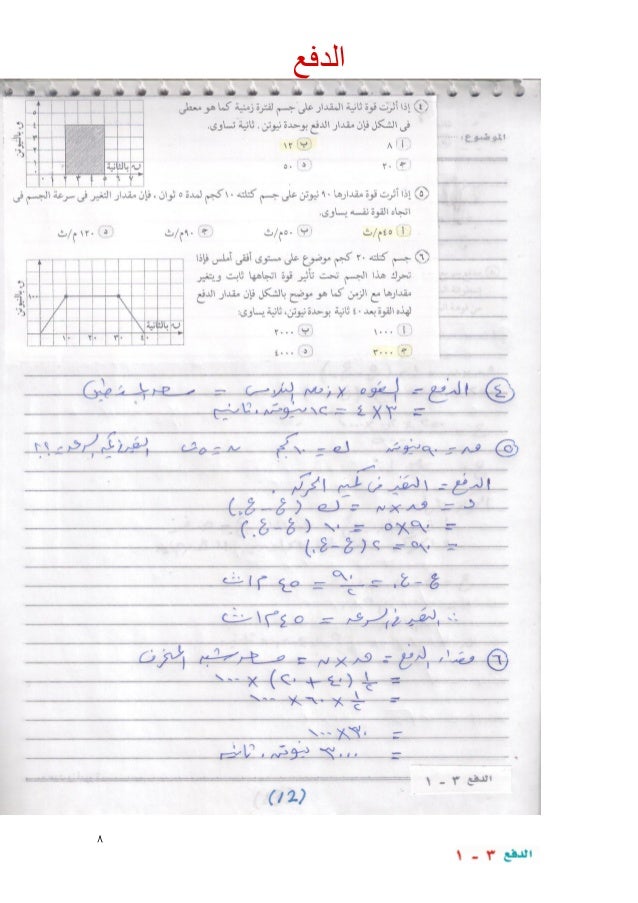 الدفع
٤ إذا أثرت قوة ثابتة المقدار على جسم لفترة زمنية كما هو معطى
فى الشكل فإن مقدار الدفع بوحدة نيوتن . ثانية تساوى.
أ ٨ ب ١٢
ج ٢٠ د ٥٠
ق بالنيوتن
٥
٤
٣
٢
١
٠
٠ ١ ٢ ٣ ٤ ٥ ٦ ٧
ن بالثانية
الموضوع:
٥ إذا أثرت قوة مقدارها ٩٠ نيوتن على جسم كتلته ١٠ كجم لمدة ٥ ثوان ، فإن مقدار التغير فى سرعة الجسم فى
اتجاه القوة نفسه يساوى.
أ ٤٥م/ث ب ٥٠م/ث ج ٩٠م/ث د ١٢٠م/ث
٦ جسم كتلته ٢٠ كجم موضوع على مستوى أفقى أملس فإذا
تحرك هذا الجسم تحت تأثير قوة اتجاهها ثابت ويتغير
مقدارها مع الزمن كما هو موضح بالشكل فإن مقدار الدفع
لهذه القوة بعد ٤٠ ثانية بوحدة نيوتن. ثانية يساوى:
أ ١٠٠٠ ب ٢٠٠٠
ج ٣٠٠٠ د ٤٠٠٠
ق بالنيوتن
١٠٠
١٠ ٢٠ ٣٠ ٤٠
ن بالثانية
٤ الدفع = القوة × زمن التلامس = مساحة المستطيل
= ٣×٤ = ١٢ نيوتن . ثانية
٥ ق = ٩٠ نيوتن ك = ١٠ كجم ن = ٥ ث التغير في السرعة = ؟؟
الدفع = التغير فى كمية الحركة .
د = ق × ن = ك (ع - ع.)
= ٩٠×٥ = ١٠ (ع - ع.)
= ٩٠ = ٢ (ع - ع.)
ع - ع. = ٩٠/٢ = ٤٥ م/ث
∴ التغير فى السرعة = ٤٥ م/ث
٦ مقدار الدفع = ق × ن = مساحة شبه المنحرف
= ١/٢ (٤٠ + ٢٠) × ١٠٠
= ١/٢ × ٦٠ × ١٠٠
= ٣٠ × ١٠٠
= ٣٠٠٠ نيوتن . ثانية
الدفع ٣ - ١
(12)
٨
الدفع ٣ - ١